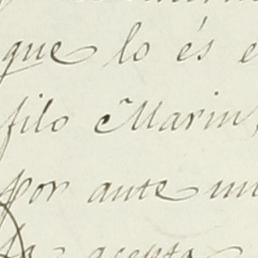 que lo és
filo Marin
por ante
acepta